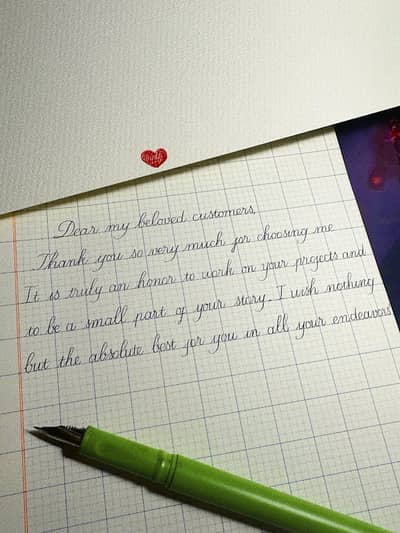 Dear my beloved customers,
Thank you so very much for choosing me
It is truly an honor to work on your projects and
to be a small part of your story. I wish nothing
but the absolute best for you in all your endeavors